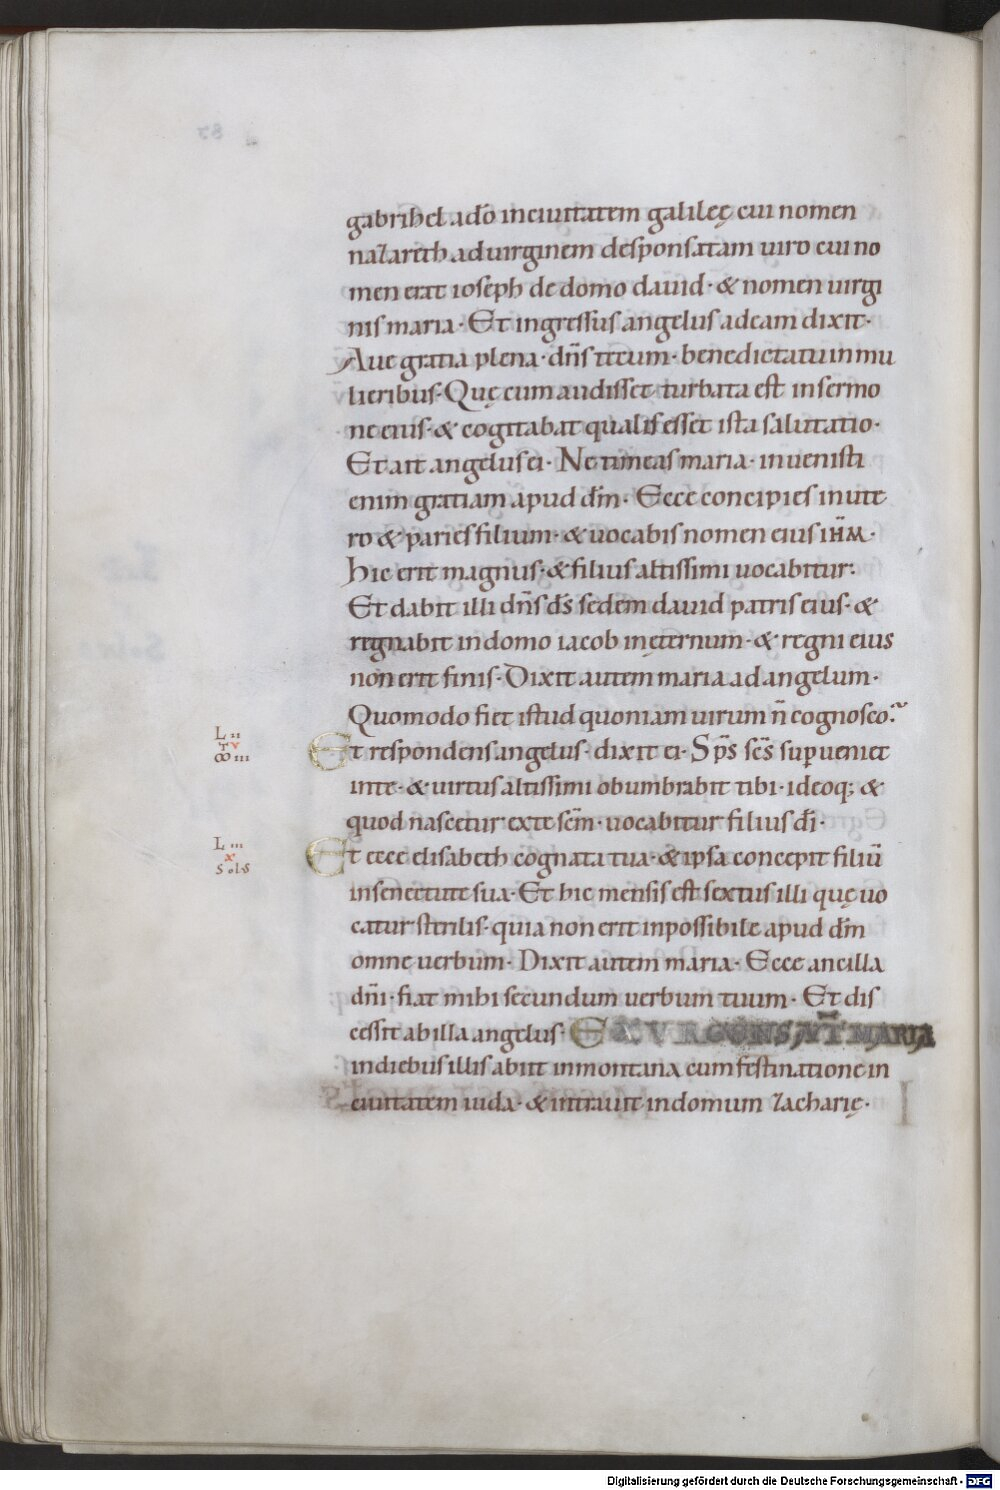 gabrihel a dõ in ciuitatem galileę cui nomen
nazareth ad uirginem desponsatam uiro cui no
men erat ioseph de domo dauid · & nomen uirgi
nis maria · Et ingressus angelus ad eam dixit ·
Aue gratia plena · dñs tecum · benedicta tu in mu
lieribus · Quę cum audisset turbata est in sermo
ne eius · & cogitabat qualis esset ista salutatio ·
Et ait angelus ei · Ne timeas maria · inuenisti
enim gratiam apud dm̃ · Ecce concipies in ute
ro & paries filium · & uocabis nomen eius ihm̃ ·
Hic erit magnus · & filius altissimi uocabitur ·
Et dabit illi dñs ds̃ sedem dauid patris eius · &
regnabit in domo iacob in ęternum · & regni eius
non erit finis · Dixit autem maria ad angelum ·
Quomodo fiet istud quoniam uirum ñ cognosco ?
L II
T V
ꝏ III
Et respondens angelus · dixit ei · Sp̃s sc̃s sup̱ueniet
in te · & uirtus altissimi obumbrabit tibi · ideoq; &
quod nascetur ex te scm̃ · uocabitur filius dĩ ·
L III
X
Sol S
Et ecce elisabeth cognata tua · & ipsa concepit filiũ
in senectute sua · Et hic mensis est sextus illi quę uo
catur sterilis · quia non erit inpossibile apud dm̃
omne uerbum · Dixit autem maria · Ecce ancilla
dñi · fiat mihi secundum uerbum tuum · Et dis
cessit ab illa angelus · EX̃VRGENS AVT̃ MARIA
in diebus illis abiit in montana cum festinatione in
ciuitatem iuda · & intrauit in domum zacharię ·
Digitalisierung gefördert durch die Deutsche Forschungsgemeinschaft - DFG